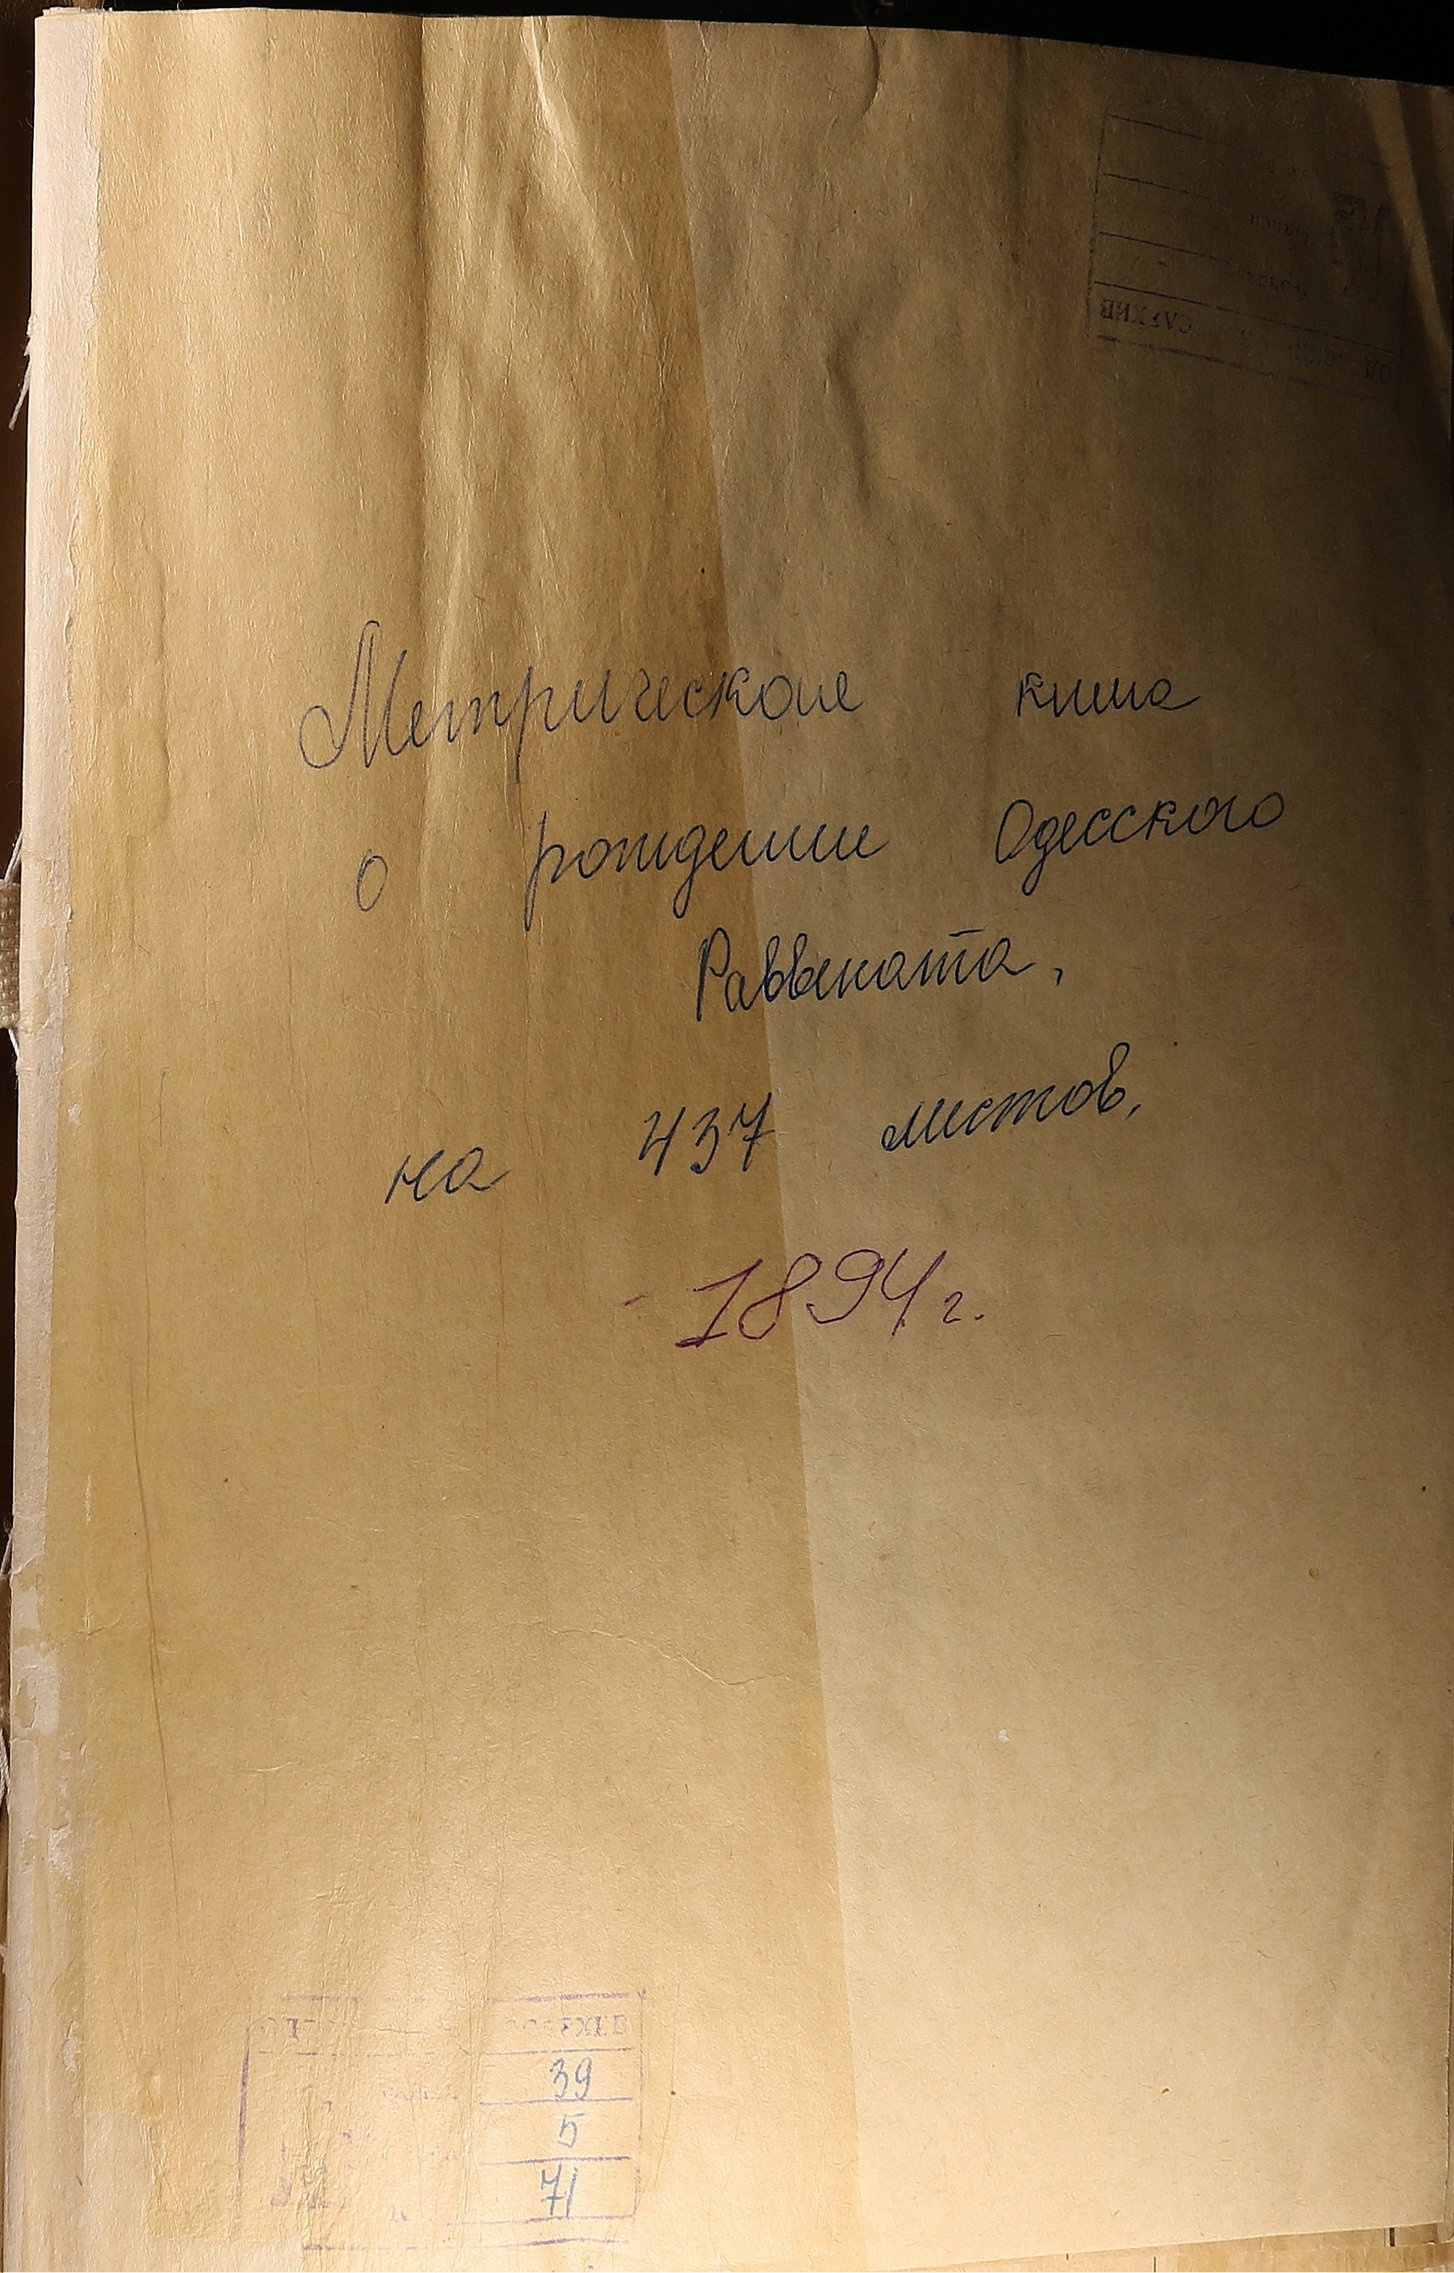 Метрическая книга
о рождении Одесского
Раввината,
на 437 листов,
- 1894 г.
39
5
71